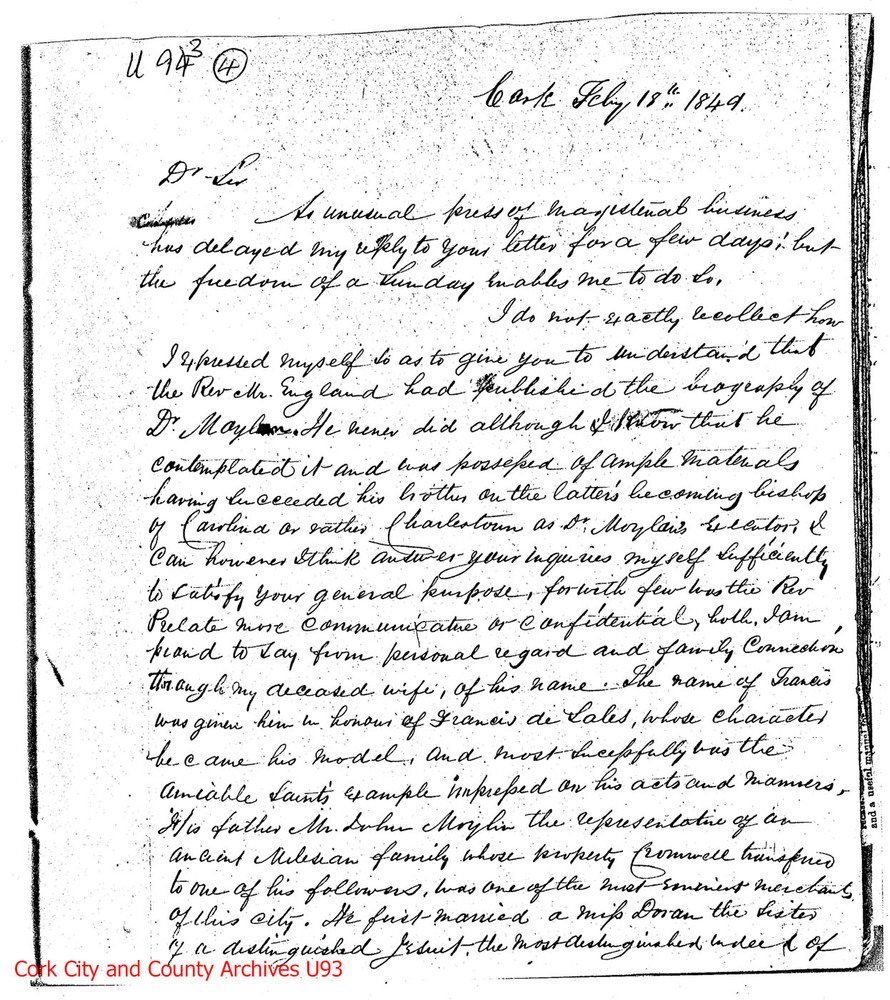 U 943 (4)
Cork Feby 18th 1849.
Dr Sir
An unusual press of magisterial business
has delayed my reply to your letter for a few days; but
the freedom of a Sunday enables me to do so.
I do not exactly recollect how
I expressed myself so as to give you to understand that
the Rev Mr. England had published the biography of
Dr. Moylan. He never did although I know that he
contemplated it and was possessed of ample materials
having succeeded his brother on the latter's becoming bishop
of Carolina or rather Charlestown as Dr. Moylan's executor. I
can however I think answer your inquiries myself sufficiently
to satisfy your general purpose, for with few was the Rev
Prelate more communicative or confidential, both, I am
proud to say from personal regard and family connection
through my deceased wife, of his name. The name of Francis
was given him in honour of Francis de Sales, whose character
became his model, and most sucessfully was the
amiable Saints example impressed on his acts and manners.
His father Mr. John Moylin the representative of an
ancient Milesian family whose property Cromwell transfered
to one of his followers, was one of the most eminent merchants
of this city. He first married a miss Doran the sister
of a distinguished Jesuit, the most distinguished indeed of
and a useful manual for
Cork City and County Archives U93